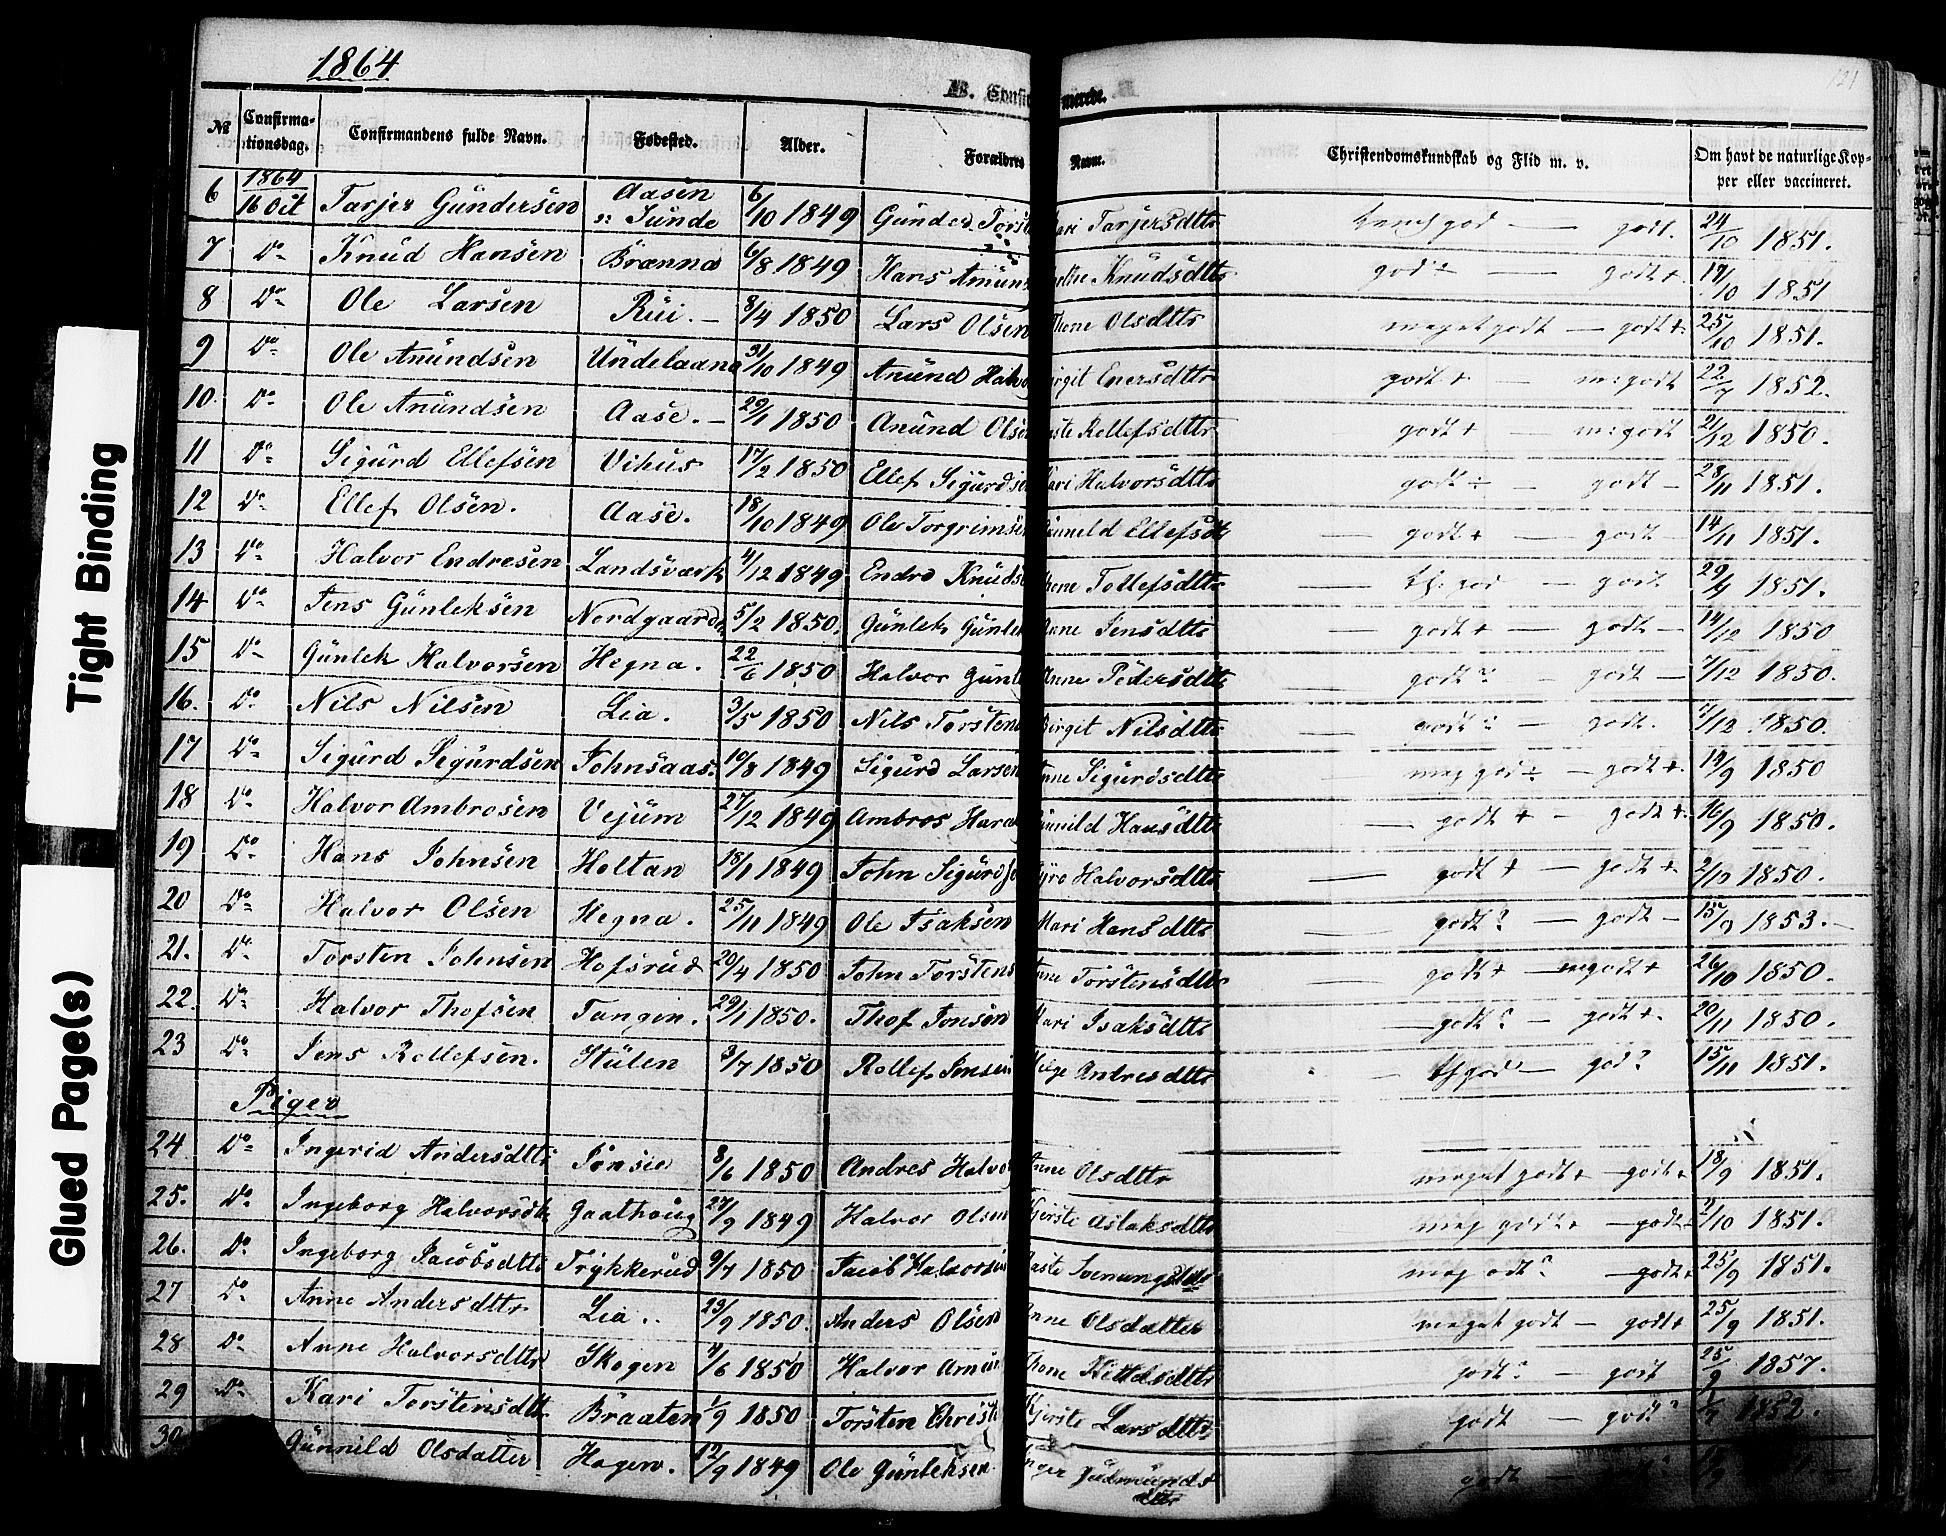 1864
121
B. Confirmerede.
№ Confirmationsdag. Confirmandens fulde Navn. Fødested. Alder. Forældres Navne. Christendomskundskab og Flid m. v. Om havt de naturlige Kopper eller vaccineret.
6 1864 16 Oct Tarjer Gundersen Aasen n: Sunde 6/10 1849 Gunder Torst Kari Tarjersdttr godt. 24/10 1851.
7 Do Knud Hansen Brænna 6/8 1849 Hans Amund Knudsdttr godt + — godt + 17/10 1851
8 Do Ole Larsen Rui. — 8/4 1850 Lars Olsen Thone Olsdttr meget godt — godt +. 25/10 1851.
9 Do Ole Anundsen Undelaana 31/10 1849 Anund Halvo Birgit Enersdttr godt + — m: godt 22/7 1852.
10. Do Ole Anundsen Aase. — 29/1 1850 Anund Olsen Rollefsdttr godt + — m: godt 21/12 1850.
11 Do Sigurd Ellefsen Vihus 17/2 1850 Ellef Sigurdsen Kari Halvorsdttr godt ÷ — godt — 28/11 1851.
12 Do Ellef Olsen. Aase. 18/10 1849 Ole Torgrimsen Gunnild Ellefsdt — godt + — godt — 14/11 1851.
13 Do Halvor Endresen Landsværk 4/12 1849 Endre Knuds Thone Tollefsdttr — godt 29/9 1851.
14 Do Jens Gunleksen Nordgaarden 5/2 1850. Gunlek Gunlek Anne Jensdttr — godt + — godt — 14/12 1850
15 Do Gunlek Halvorsen Hegna. 22/6 1850 Halvor Gunle Anne Pedersdttr — godt? — godt — 7/12 1850.
16. Do Nils Nilsen Lia. 3/5 1850 Nils Torstens Birgit Nilsdttr — godt? — godt. 7/12 1850.
17 Do Sigurd Sigurdsen Johnsaas. 10/8 1849 Sigurd Larsen Anne Sigurdsdttr — meg godt ÷ — godt +. 19/9 1850
18 Do Halvor Ambrosen Vejum 27/12 1849 Ambros Hara Gunnild Hansdttr — godt + — godt +. 16/9 1850.
19 Do Hans Johnsen Holtan 18/1 1849 John Sigurds Gyro Halvorsdttr — godt + — godt +. 2/10 1850.
20 Do Halvor Olsen Hegna. 25/11 1849 Ole Isaksen Mari Hansdttr — godt? — godt — 15/9 1853.
21. Do Torsten Johnsen Hofsrud 20/4 1850 John Torstens Anne Torstensdttr godt + — mgodt + 26/10 1850.
22. Do Halvor Thofsen Tangen. 29/1 1850. Thof Jonsen Mari Isaksdttr — godt? — godt +. 20/11 1850.
23 Do Jens Rollefsen. Stulen 3/7 1850 Rollef Jensen Helge Andresdttr god? 15/11 1851.
Piger
24 Do Ingerid Andersdttr Jonsie 8/6 1850 Andres Halvo Anne Olsdttr meget godt + — godt + 18/9 1851.
25. Do Ingeborg Halvorsdtt Gaathoug 27/9 1849 Halvor Olsen Kjerste Aslaksdttr meg godt + — godt + 2/10 1851.
26. Do Ingeborg Jacobsdttr Trykkerud 9/7 1850 Jacob Halvorsen Aaste Svenungsdttr meg odt? — godt + 25/9 1851.
27 Do Anne Andersdttr Lia.. 23/9 1850. Anders Olsen Anne Olsdatter meget godt — godt + 25/9 1851.
28 Do Anne Halvorsdttr Skogen 4/6 1850 Halvor Amun Thone Kittelsdttr godt? — godt 25/9 1857.
29 Do Kari Torstensdtt Braaten 1/9 1850 Torsten Christe Kjerste Larsdttr godt — godt? 1852.
30 Gunnild Olsdatter Hagen. 12/9 1849 Ole Gunleksen Inger Gudmunds dttr godt
Tight Binding
Glued Page(s)